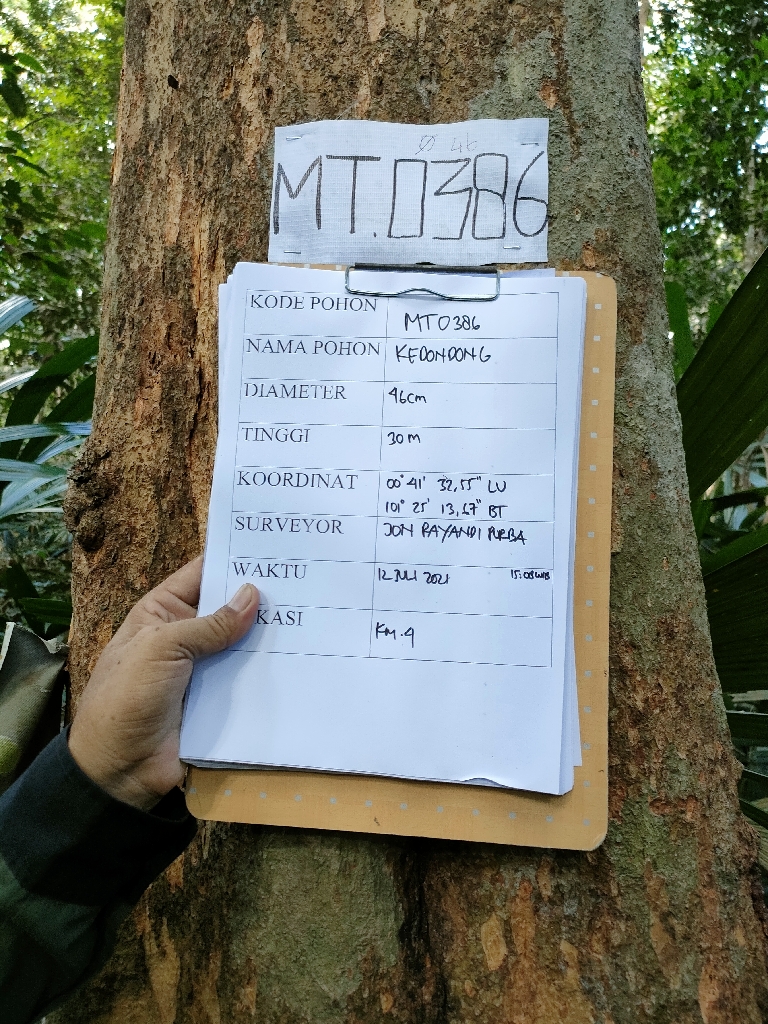 Ø 46
MT.0386
KODE POHON MT0386
NAMA POHON KEDONDONG
DIAMETER 46cm
TINGGI 30 M
KOORDINAT 00° 41' 32,55" LU
101° 25' 13,67" BT
SURVEYOR JON RAYANDI PURBA
WAKTU 12 JULI 2021 15:08 WIB
KASI KM.4